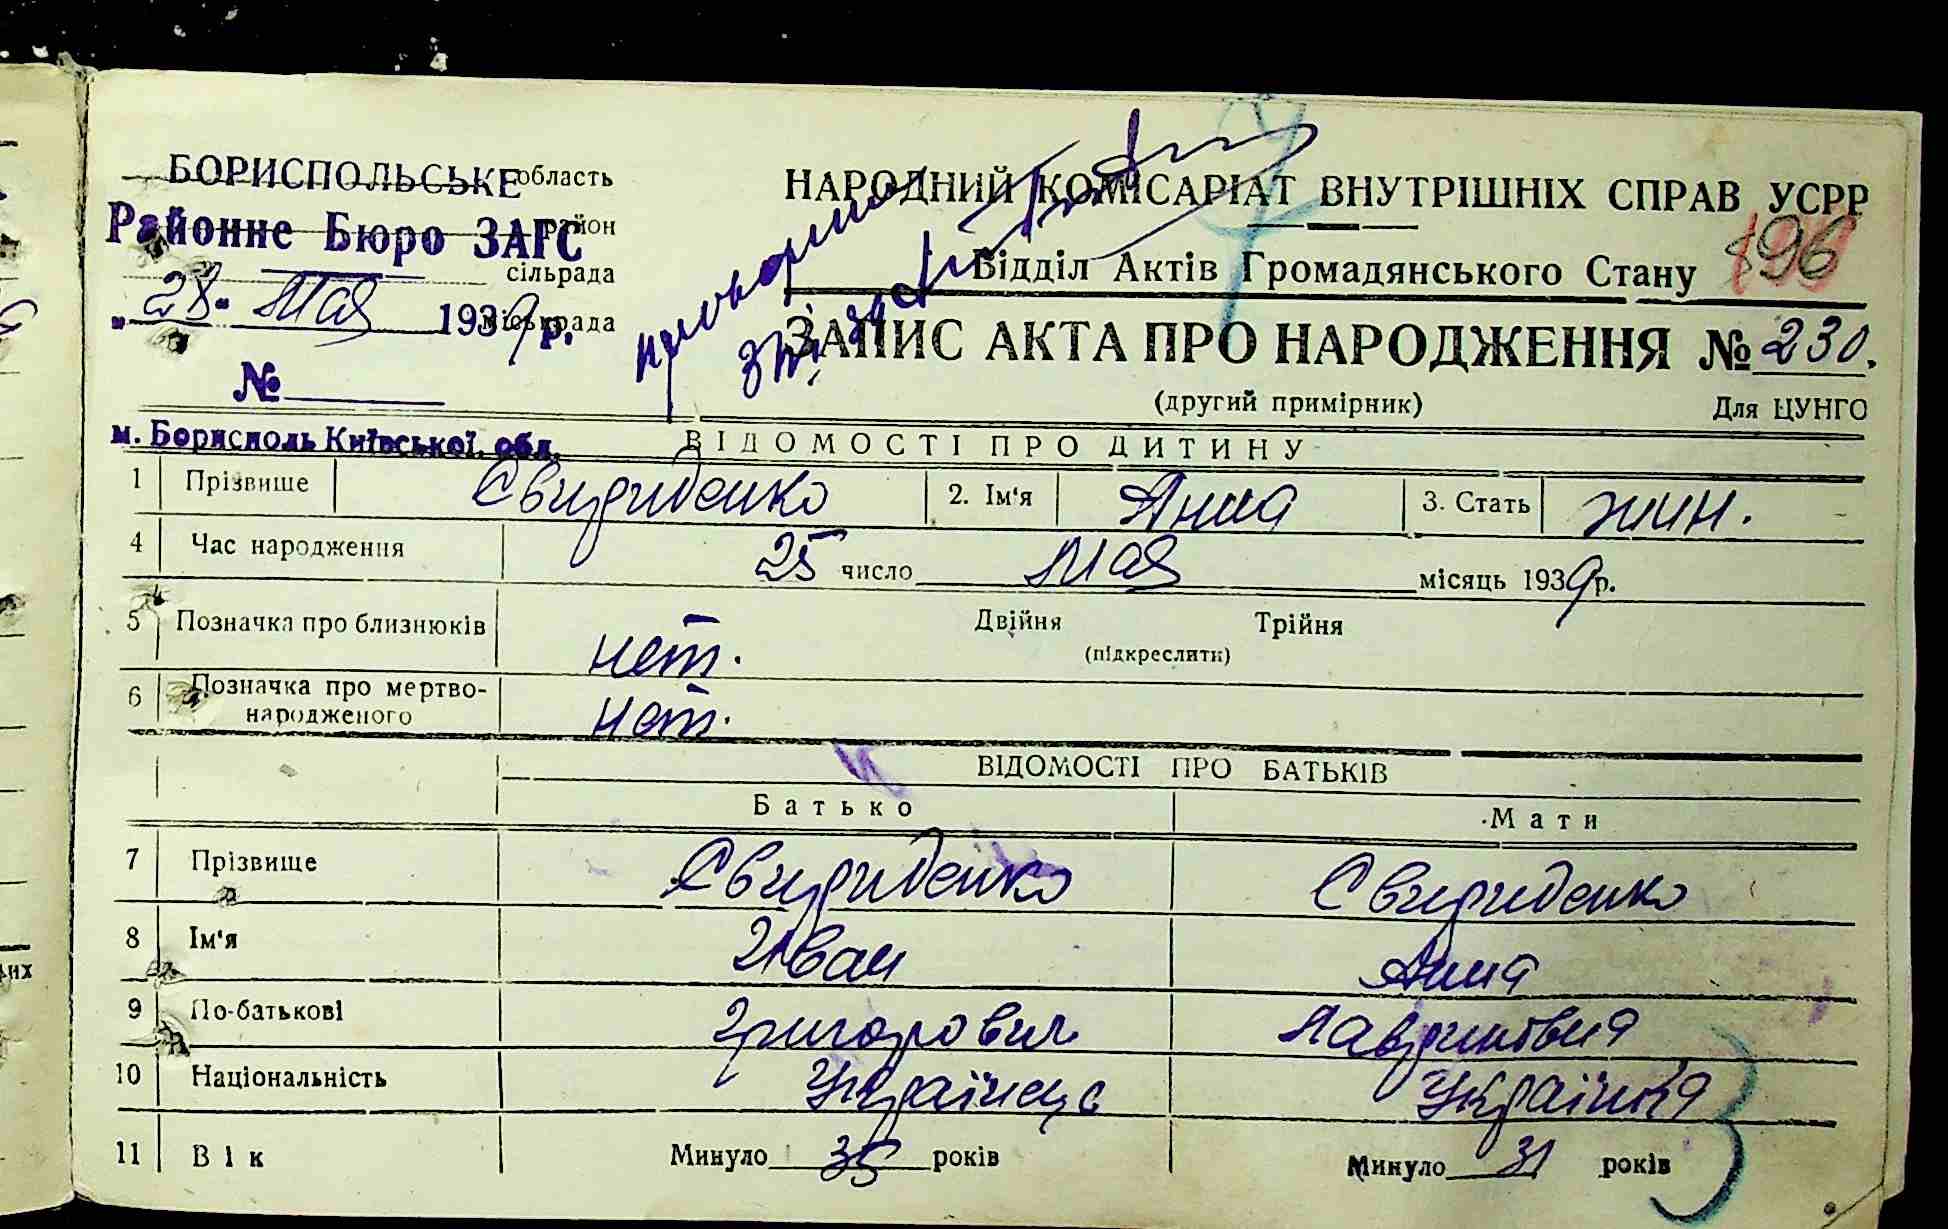 БОРИСПОЛЬСЬКЕ область
Районне Бюро ЗАГС район
сільрада
28 Мая 1939 р. міськрада
№
м. Бориспіль Київської обл.
НАРОДНИЙ КОМІСАРІАТ ВНУТРІШНІХ СПРАВ УСРР
Відділ Актів Громадянського Стану 196
ЗАПИС АКТА ПРО НАРОДЖЕННЯ № 230.
(другий примірник) Для ЦУНГО
ВІДОМОСТІ ПРО ДИТИНУ
1 Прізвище Свириденко 2. Ім'я Анна 3. Стать жин.
4 Час народження 25 число Мая місяць 1939 р.
5 Позначка про близнюків нет. Двійня Трійня
(підкреслити)
6 Позначка про мертво-
народженого нет.
ВІДОМОСТІ ПРО БАТЬКІВ
Батько Мати
7 Прізвище Свириденко Свириденко
8 Ім'я Иван Анна
9 По-батькові Григорович Лавринтовна
10 Національність Українець Українка
11 Вік Минуло 35 років Минуло 31 років
них